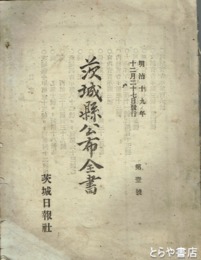 明治十九年
十二月二十七日發行
第壹號
茨城縣公布全書
茨城日報社
とらや書店